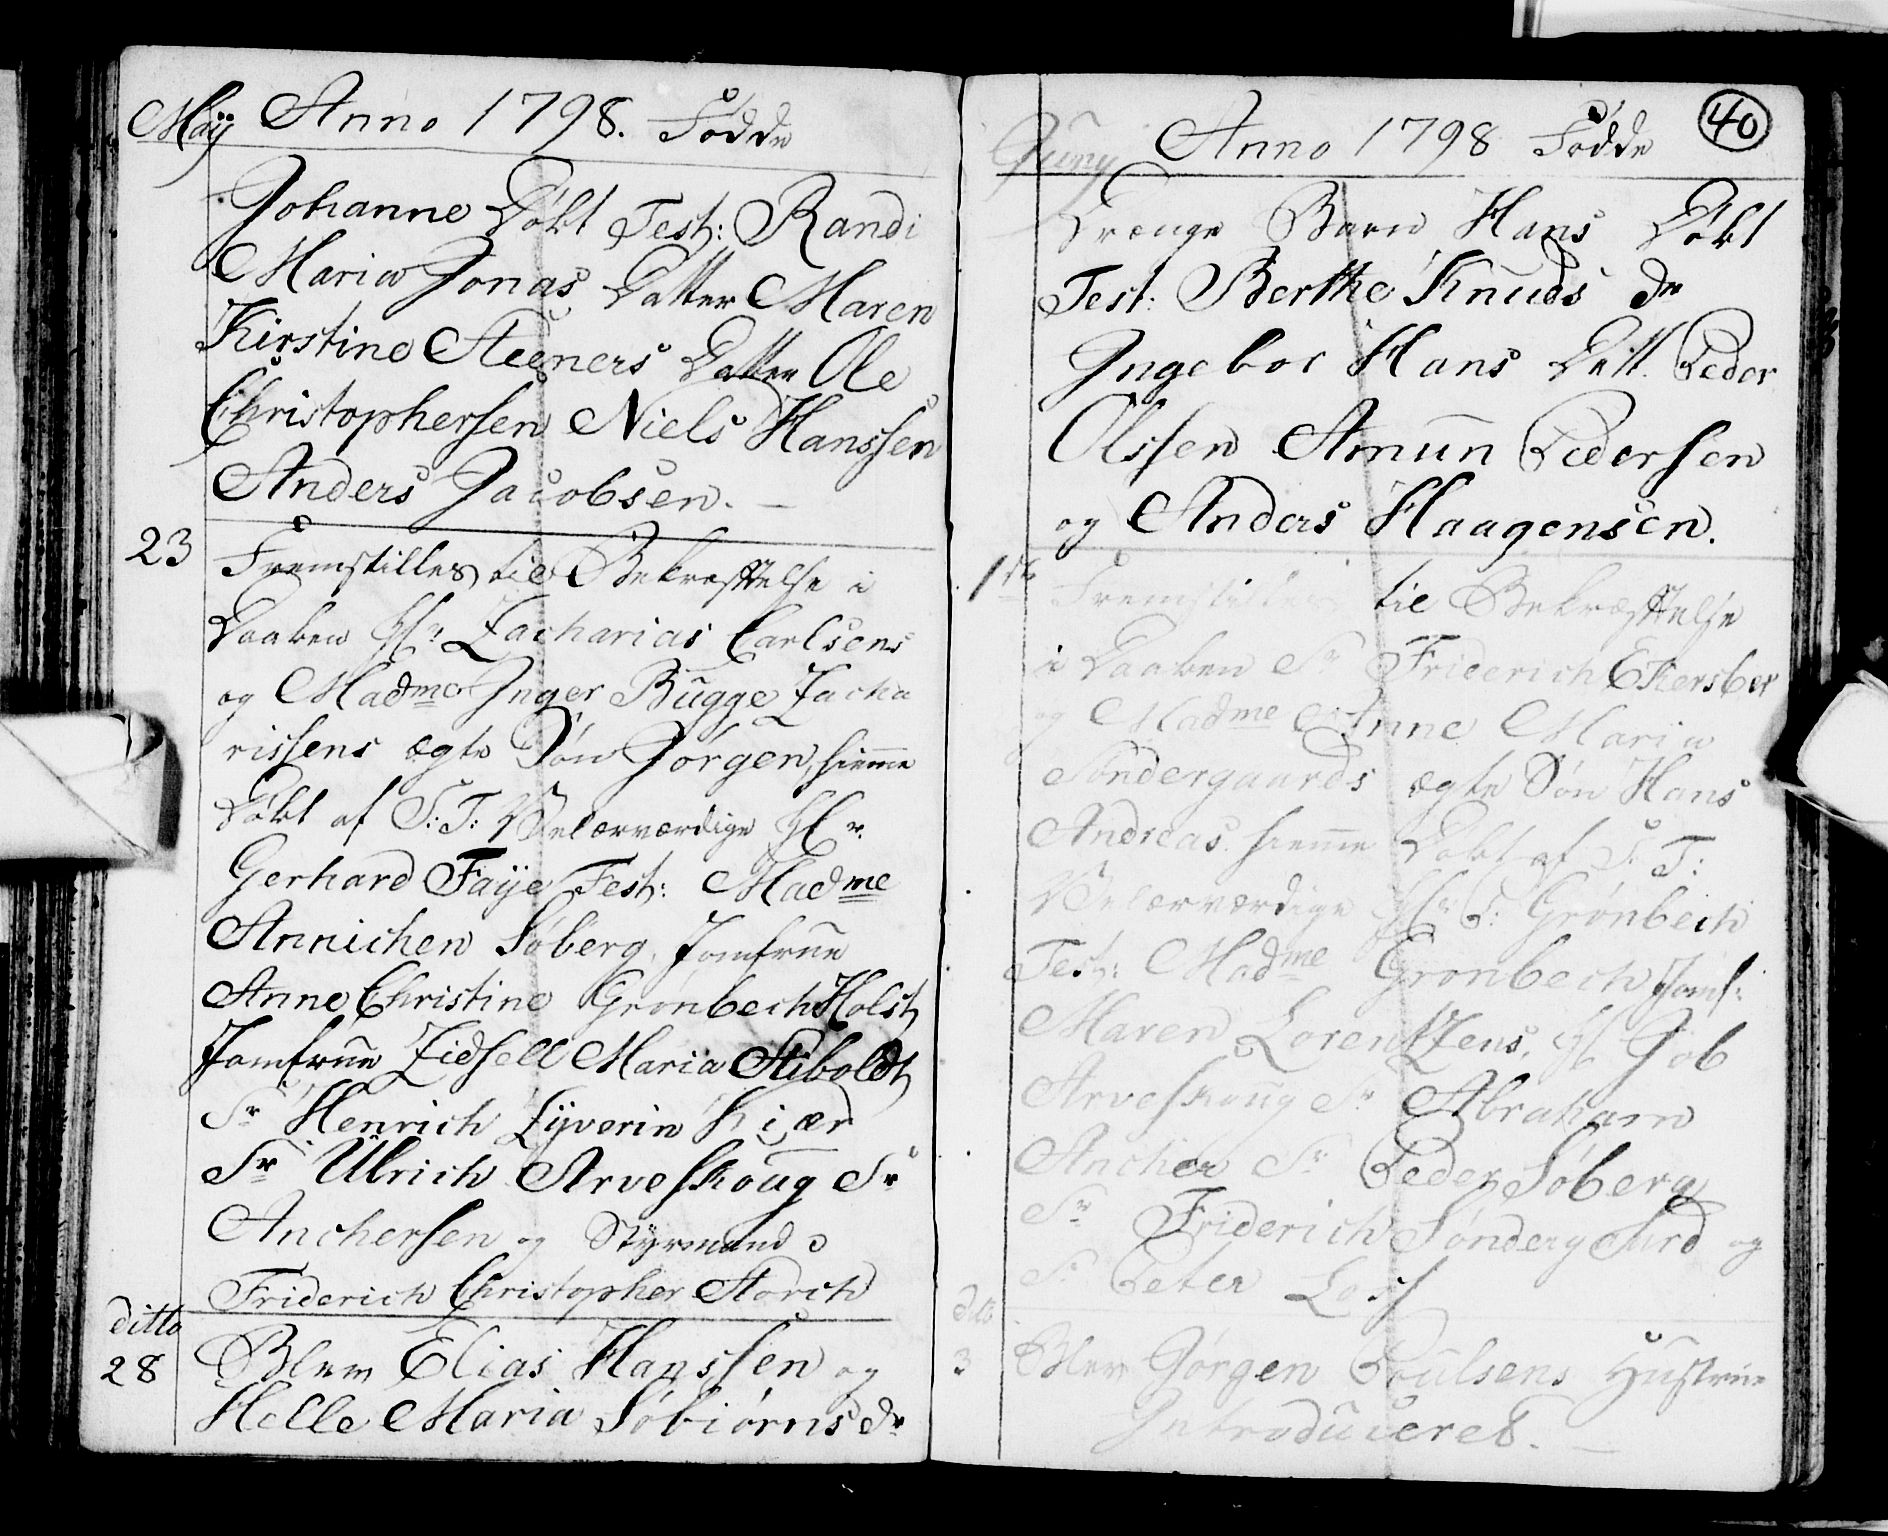 Maÿ Anno 1798. Fødde
Johanne Døbt Test: Randi
Maria Jonas Datter Maren
Kirstine Steeners Datter Ole
Christophersen Niels Hanssen
Anders Jacobsen. —
23 Fremstilles til Bekræftelse i
Daaben Hr. Zacharias Carlsens
og Madme Inger Bugge Zacha
rissens ægte Søn Jørgen, hiemme
Døbt af S: T: Velærværdige Hr.
Gerhard Faÿe Test: Madme
Annichen Søberg, Jomfrue
Anne Christine Grønbech Holst
Jomfrue Zidsell Maria Stiboldt
Sr Henrich Zÿverin Kiær
Sr Ulrich Arveskoug Sr
Anchersen og Stÿrmand
Friderich Christopher Storch
ditto
28 Blem Elias Hanssen og
Helle Maria Søbiørns dr
40
Juny Anno 1798 Fødde
Drænge Barn Hans Døbt
Test: Berthe Knuds dr
Ingebor Hans Datt. Peder
Olssen Amun Pedersen
og Anders Haagensen.
1ste Fremstilles til Bekræftelse
i Daaben Sr Friderich Ekersber
og Madme Anne Maria
Søndergaards ægte Søn Hans
Andreas. hiemme Døbt af S. T:
Velærværdige Hr P: Grønbech
Test: Madme Grønbech Jomf:
Maren Lorentzens, H Job
Arveskoug Sr Abraham
Ancher Sr Peder Søberg
Sr Friderich Søndergaard og
Sr Peter Loss
dito
3 Blev Jørgen Poulsens Hustrue
Introduceret. —